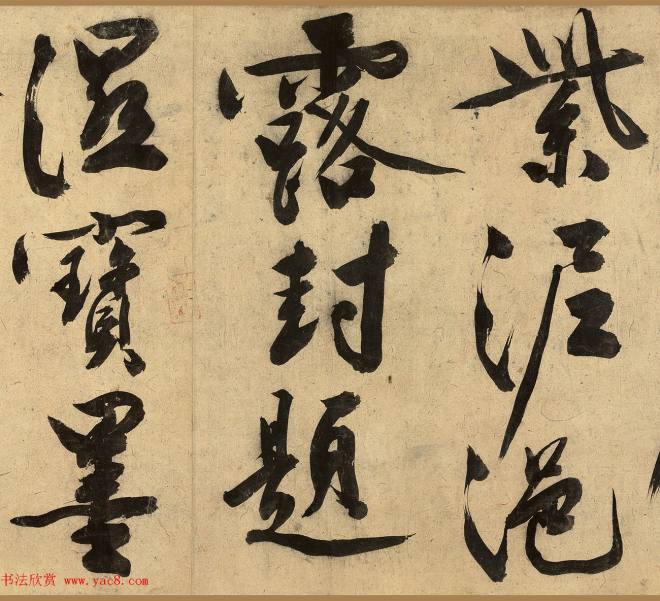 紫泥浥
露封題
湿寶墨
书法欣赏 www.yac8.com